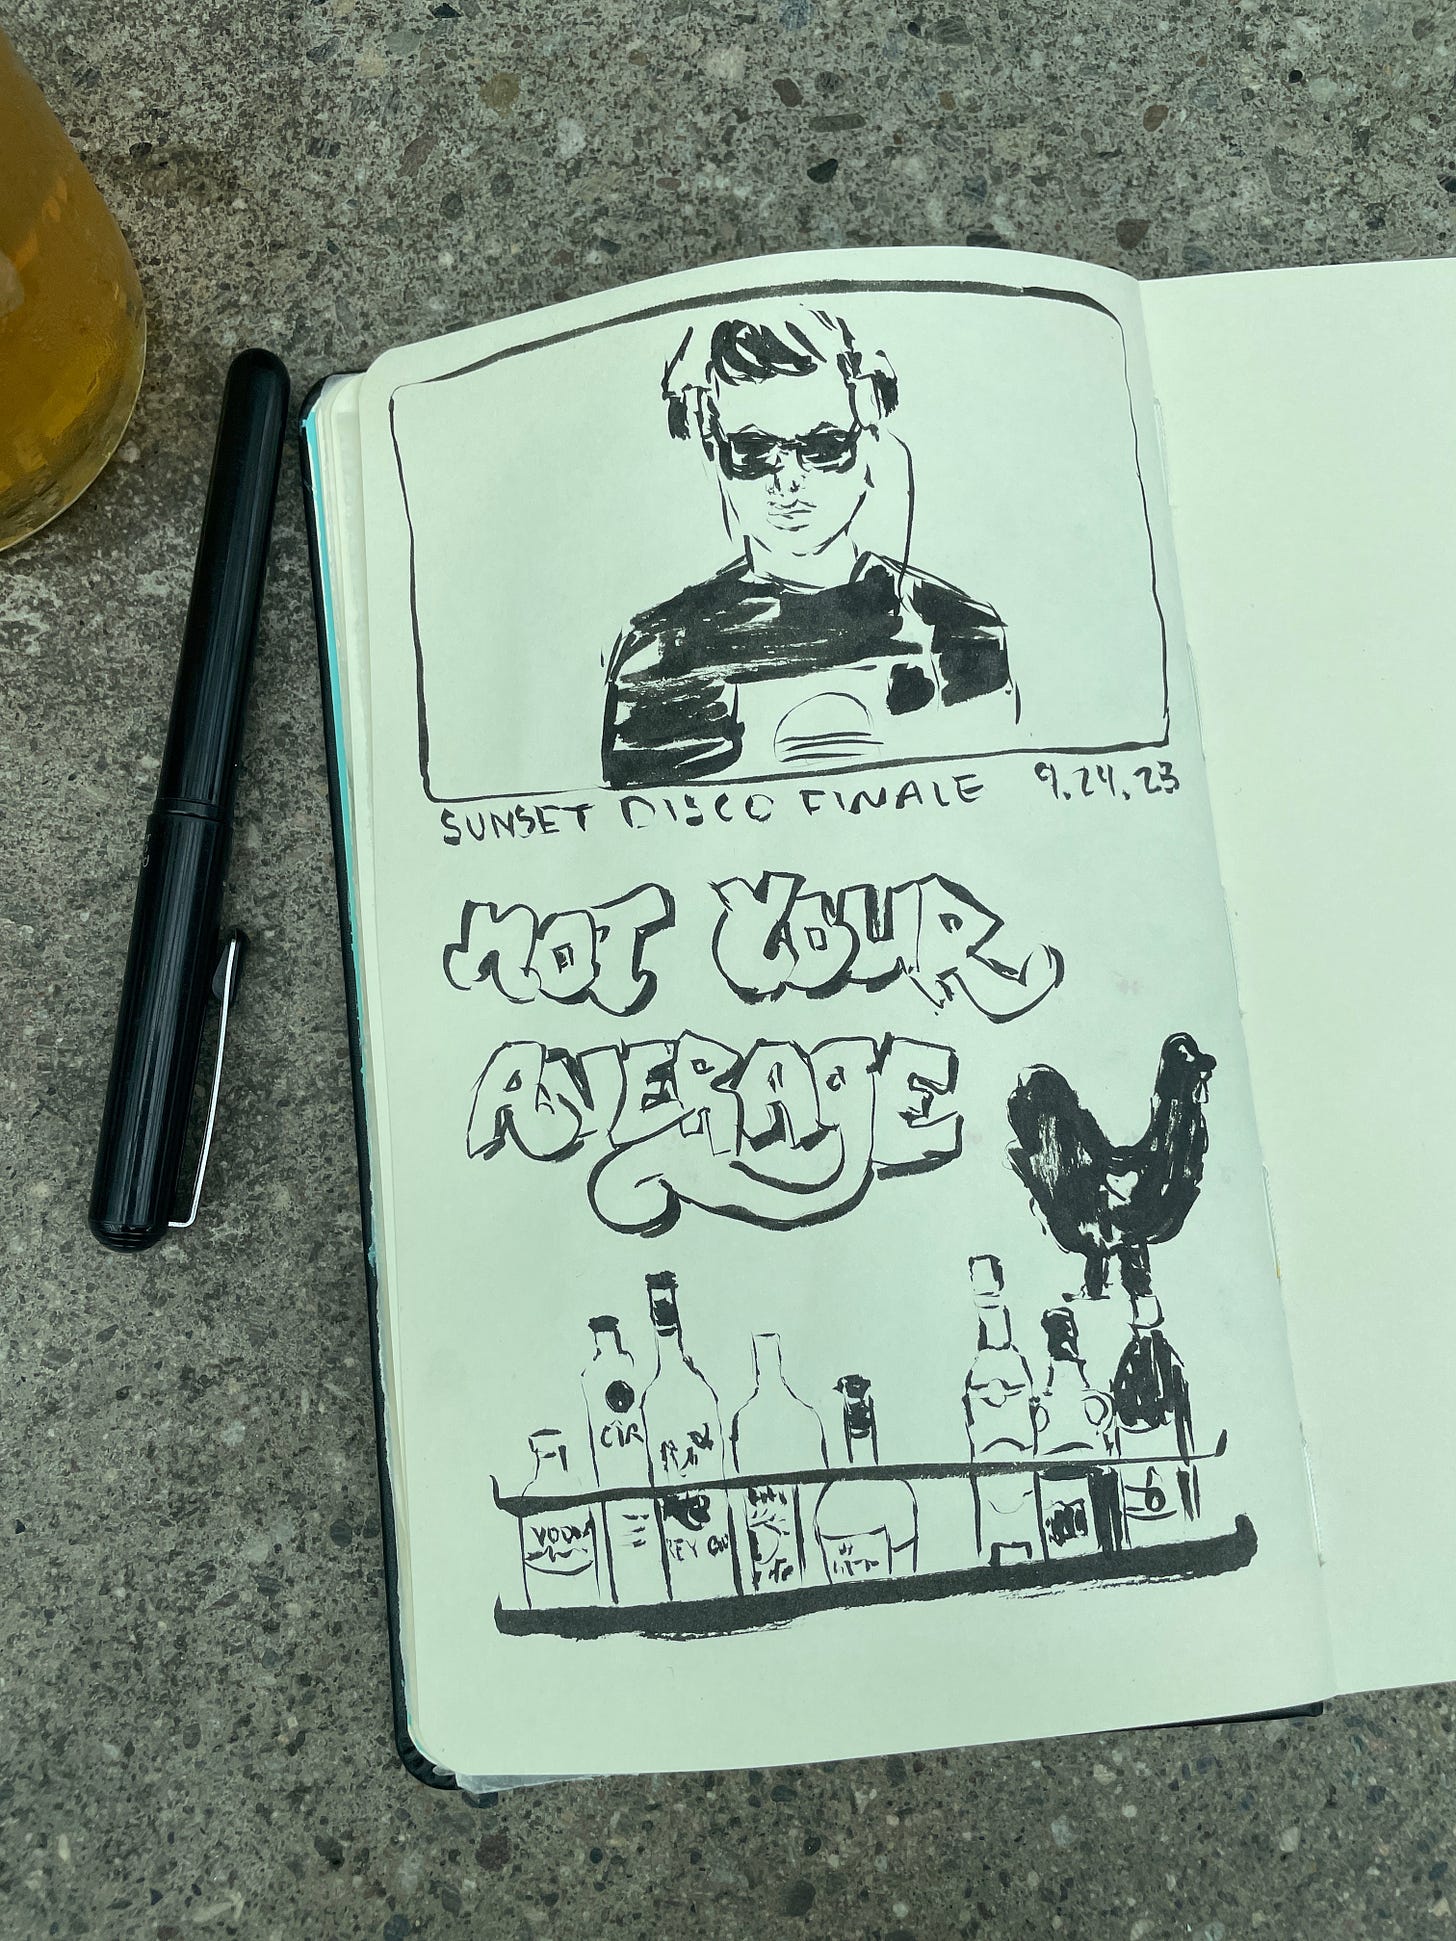 SUNSET DISCO FINALE 9.24.23
NOT YOUR
AVERAGE
CIR
VODKA
REY GO